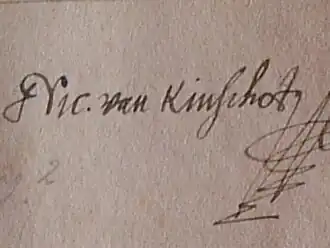 Nic. van Kinschot
2